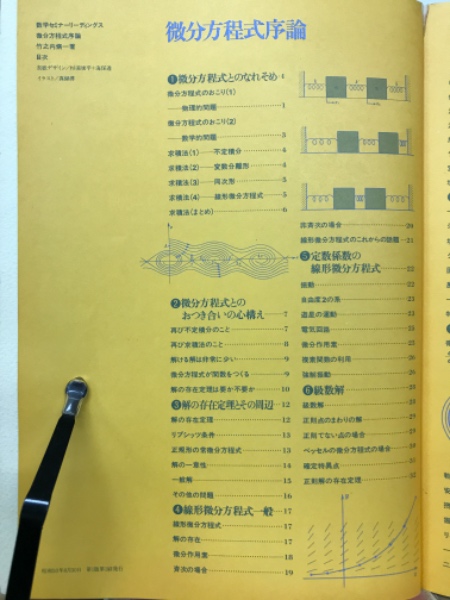 数学セミナーリーディングス
微分方程式序論
竹之内脩=著
目次
微分方程式序論
❶微分方程式とのなれそめ 1
微分方程式のおこり(1)
——物理的問題 1
微分方程式のおこり(2)
——数学的問題 3
求積法(1)——不定積分 4
求積法(2)——変数分離形 4
求積法(3)——同次形 5
求積法(4)——線形微分方程式 5
求積法(まとめ) 6
❷微分方程式との
おつき合いの心構え 7
再び不定積分のこと 7
再び求積法のこと 8
解ける解は非常に少い 9
微分方程式が関数をつくる 9
解の存在定理は要か不要か 10
❸解の存在定理とその周辺 12
解の存在定理 12
リプシッツ条件 13
正規形の常微分方程式 13
解の一意性 14
一般解 15
その他の問題 16
❹線形微分方程式一般 17
線形微分方程式 17
解の存在 17
微分作用素 18
斉次の場合 19
非斉次の場合 20
線形微分方程式のこれからの話題 21
❺定数係数の
線形微分方程式 22
振動 22
自由度2の系 23
遊星の運動 23
電気回路
微分作用素
複素関数の利用 26
強制振動 26
❻級数解
級数解
正則点のまわりの解
正則でない点の場合
ベッセルの微分方程式の場合
確定特異点
正則解の存在定理